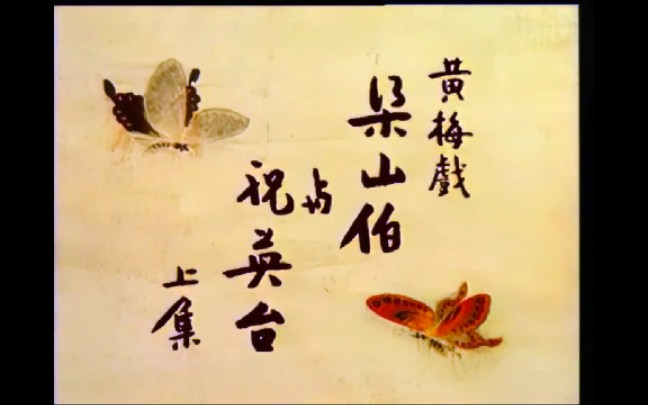 黄梅戲
梁山伯
与
祝英台
上集